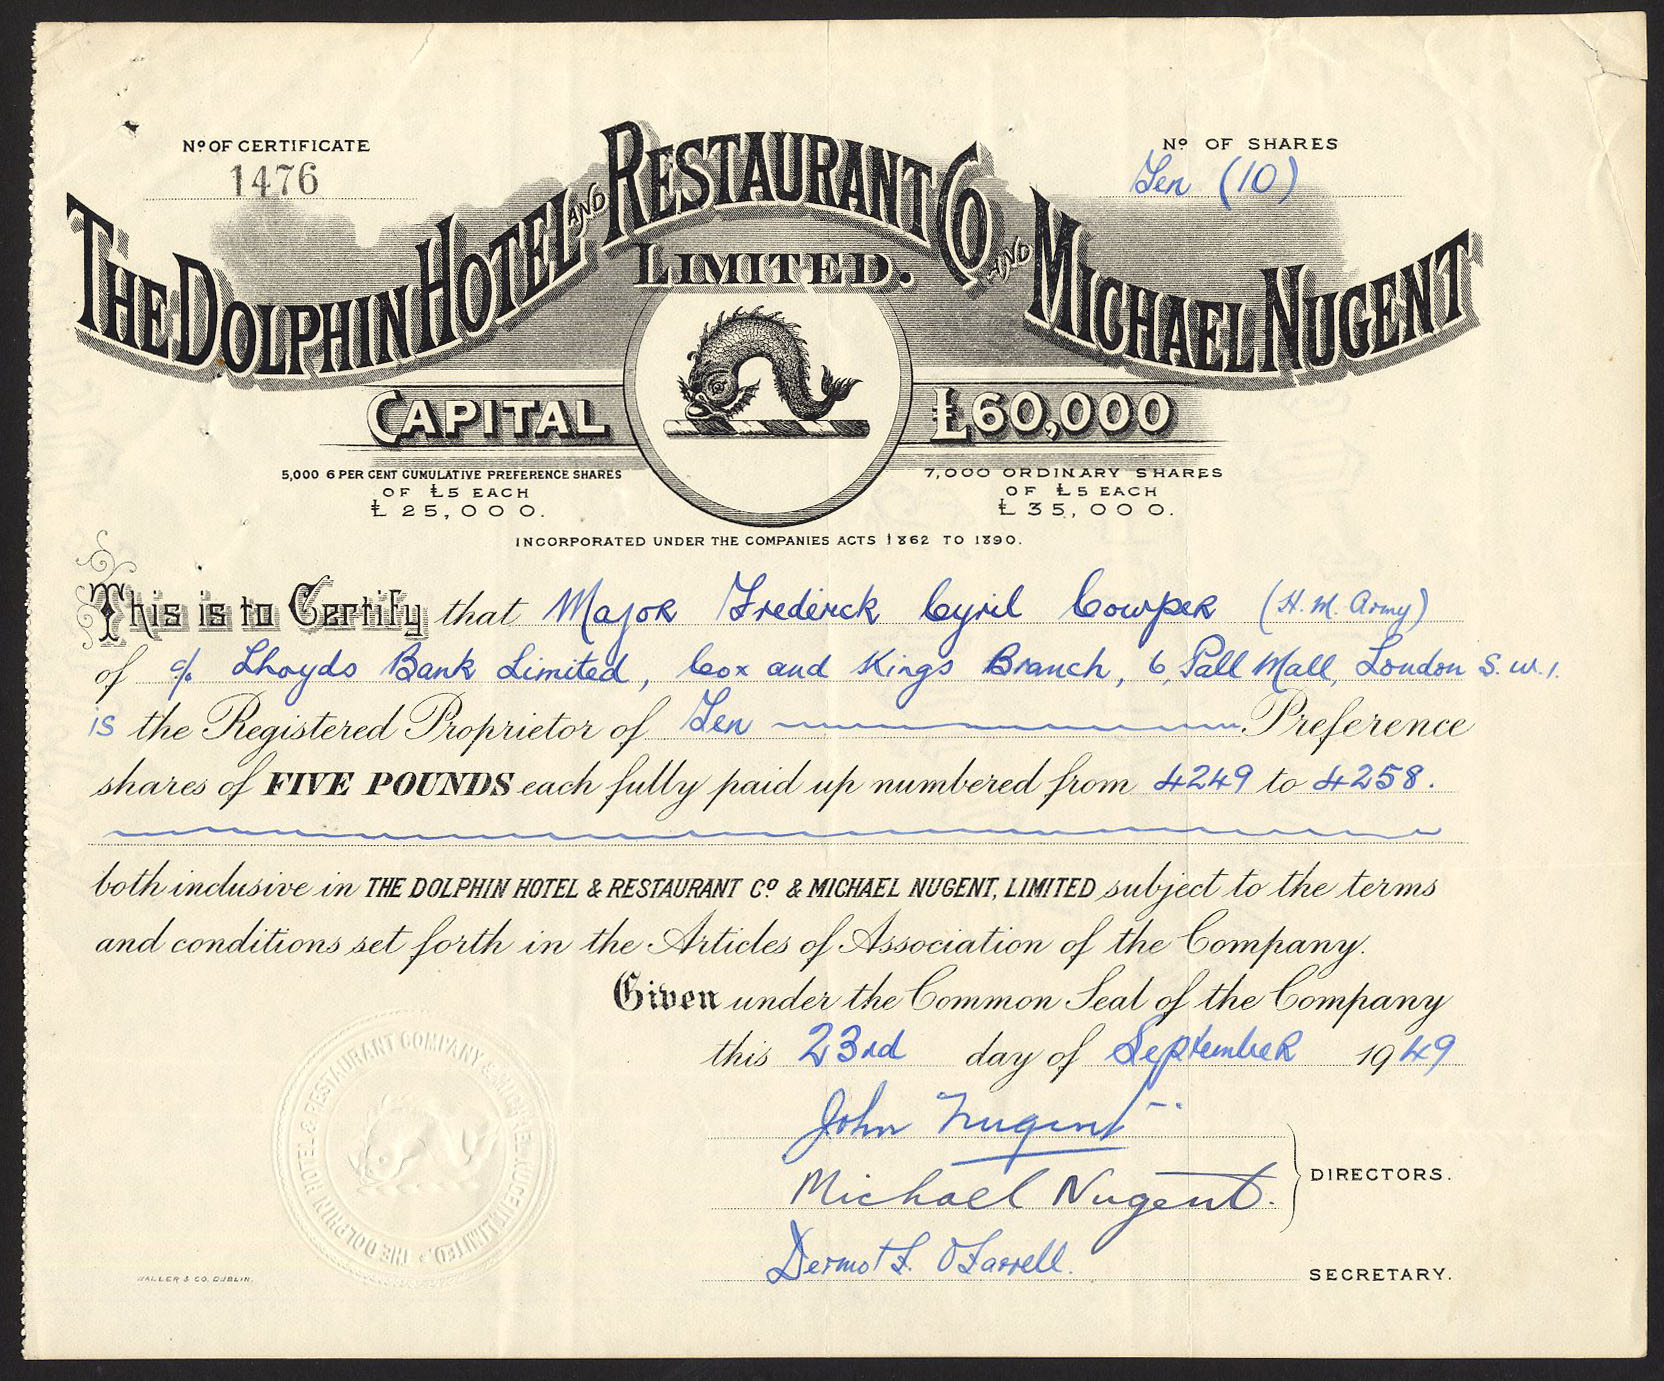 Nº OF CERTIFICATE
1476
Nº OF SHARES
Ten (10)
THE DOLPHIN HOTEL AND RESTAURANT Cº AND MICHAEL NUGENT
LIMITED.
CAPITAL £60,000
5,000 6 PER CENT CUMULATIVE PREFERENCE SHARES
OF £5 EACH
£25,000.
7,000 ORDINARY SHARES
OF £5 EACH
£35,000.
INCORPORATED UNDER THE COMPANIES ACTS 1862 TO 1890.
This is to Certify that Major Frederick Cyril Cowper (H. M. Army)
of c/o Lloyds Bank Limited, Cox and Kings Branch, 6, Pall Mall, London S.W.1.
is the Registered Proprietor of Ten Preference
shares of FIVE POUNDS each fully paid up numbered from 4249 to 4258.
both inclusive in THE DOLPHIN HOTEL & RESTAURANT Cº & MICHAEL NUGENT, LIMITED subject to the terms
and conditions set forth in the Articles of Association of the Company.
Given under the Common Seal of the Company
this 23rd day of September 1949
John Nugent
Michael Nugent.
DIRECTORS.
Dermot F. O'Farrell.
SECRETARY.
THE DOLPHIN HOTEL & RESTAURANT COMPANY & MICHAEL NUGENT LIMITED.
WALLER & CO. DUBLIN.